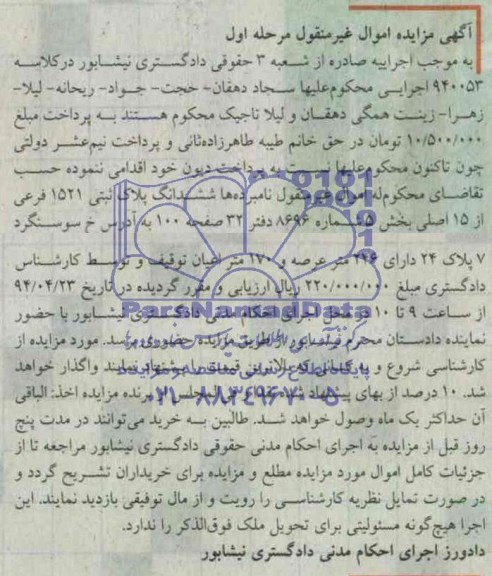 آگهی مزایده اموال غیرمنقول مرحله اول
به موجب اجراییه صادره از شعبه ۳ حقوقی دادگستری نیشابور درکلاسه
۹۴۰۰۵۳ اجرایی محکوم‌علیها سجاد دهقان- حجت- جواد- ریحانه- لیلا-
زهرا- زینت همگی دهقان و لیلا تاجیک محکوم هستند به پرداخت مبلغ
۱۰/۵۰۰/۰۰۰ تومان در حق خانم طیبه طاهرزاده‌ثانی و پرداخت نیم‌عشر دولتی
چون تاکنون محکوم‌علیها نسبت به پرداخت دیون خود اقدامی ننموده حسب
تقاضای محکوم‌له اموال غیرمنقول نامبرده‌ها ششدانگ پلاک ثبتی ۱۵۲۱ فرعی
از ۱۵ اصلی بخش ۵ شماره ۸۶۹۶ دفتر ۳۲ صفحه ۱۰۰ به آدرس خ سوسنگرد
۷ پلاک ۲۴ دارای ۲۴۶ متر عرصه و ۲۷۰ متر اعیان توقیف و توسط کارشناس
دادگستری مبلغ ۲۲۰/۰۰۰/۰۰۰ ریال ارزیابی و مقرر گردیده در تاریخ ۹۴/۰۴/۲۳
از ساعت ۹ تا ۱۰ در محل اجرای احکام مدنی دادگستری نیشابور با حضور
نماینده دادستان محترم نیشابور از طریق مزایده حضوری برسد. مورد مزایده از
کارشناسی شروع و به کسانی که بالاترین قیمت را پیشنهاد نمایند واگذار خواهد
شد. ۱۰ درصد از بهای پیشنهاد شده فی‌المجلس از برنده مزایده اخذ: الباقی
آن حداکثر یک ماه وصول خواهد شد. طالبین به خرید می‌توانند در مدت پنج
روز قبل از مزایده به اجرای احکام مدنی حقوقی دادگستری نیشابور مراجعه تا از
جزئیات کامل اموال مورد مزایده مطلع و مزایده برای خریداران تشریح گردد و
در صورت تمایل نظریه کارشناسی را رویت و از مال توقیفی بازدید نمایند. این
اجرا هیچ‌گونه مسئولیتی برای تحویل ملک فوق‌الذکر را ندارد.
دادورز اجرای احکام مدنی دادگستری نیشابور
ParsNamadData
۰۲۱-۸۸۳۴۹۶۷۰-۵